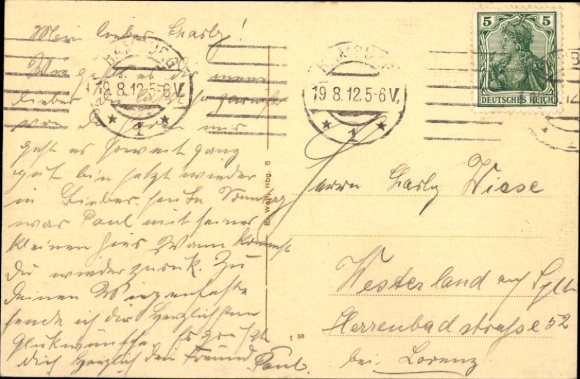 Mein lieber Charly!
Wie geht es dir mein
lieber
mir
geht es soweit ganz
gut bin jetzt wieder
in Bieber. heute Sonntag
war Paul mit seiner
kleinen hier Wann kommst
du wieder zurück. Zu
deinem Wiegenfeste
sende ich dir herzlichsten
Glückwünsche Es
dich herzlich dein Freund
Paul.
HAMBURG
19.8.12.5-6V.
* 1 *
HAMBURG
19.8.12.5-6V.
* 1 *
5 5
DEUTSCHES REICH
Hbg. 5
Herrn Charly Wiese
Westerland auf Sylt
Herrenbadstraße 52
bei Lorenz